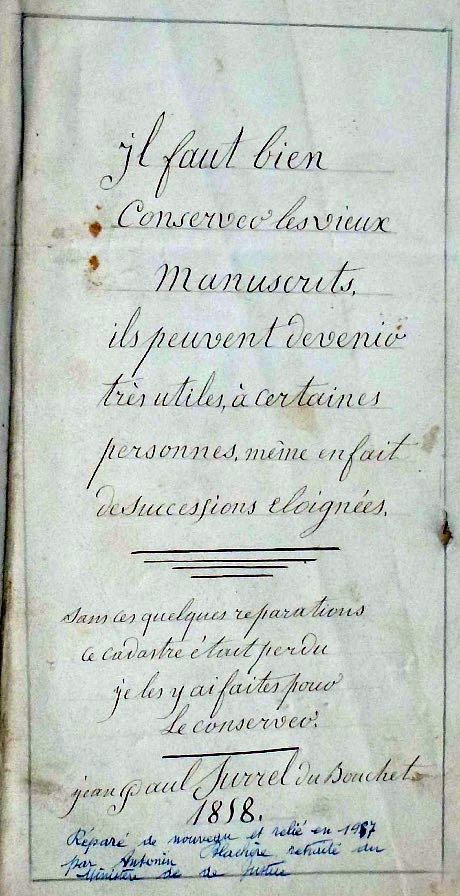 il faut bien
Conserver les vieux
manuscrits,
ils peuvent devenir
très utiles, à certaines
personnes, même en fait
de successions eloignées.
Sans ces quelques reparations
ce cadastre était perdu
je les y ai faites pour
Le conserver.
jean paul Surrel du Bouchet
1858.
Réparé de nouveau et relié en 1957
par Antonin retraité du
Ministère de de Justice